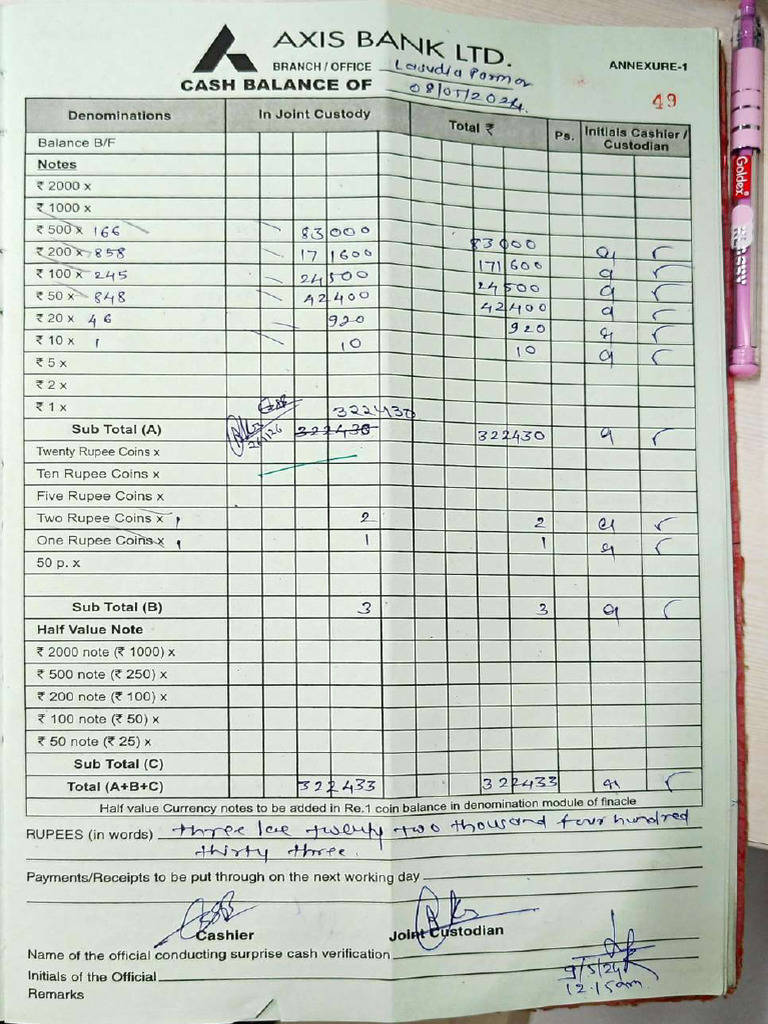 AXIS BANK LTD.
BRANCH / OFFICE Lasudia Parmar
ANNEXURE-1
CASH BALANCE OF 08/05/2024.
49
Denominations In Joint Custody Total ₹ Ps. Initials Cashier / Custodian
Balance B/F
Notes
₹ 2000 x
₹ 1000 x
₹ 500 x 166 83000 83000
₹ 200 x 858 171600 171600
₹ 100 x 245 24500 24500
₹ 50 x 848 42400 42400
₹ 20 x 46 920 920
₹ 10 x 1 10 10
₹ 5 x
₹ 2 x
₹ 1 x 322430
Sub Total (A) 322430 322430
Twenty Rupee Coins x
Ten Rupee Coins x
Five Rupee Coins x
Two Rupee Coins x 1 2 2
One Rupee Coins x 1 1 1
50 p. x
Sub Total (B) 3 3
Half Value Note
₹ 2000 note (₹ 1000) x
₹ 500 note (₹ 250) x
₹ 200 note (₹ 100) x
₹ 100 note (₹ 50) x
₹ 50 note (₹ 25) x
Sub Total (C)
Total (A+B+C) 322433 322433
Half value Currency notes to be added in Re.1 coin balance in denomination module of finacle
RUPEES (in words) three lac twenty two thousand four hundred
thirty three.
Payments/Receipts to be put through on the next working day
Cashier Joint Custodian
Name of the official conducting surprise cash verification
Initials of the Official 9/5/24
Remarks 12.15am.
Goldex